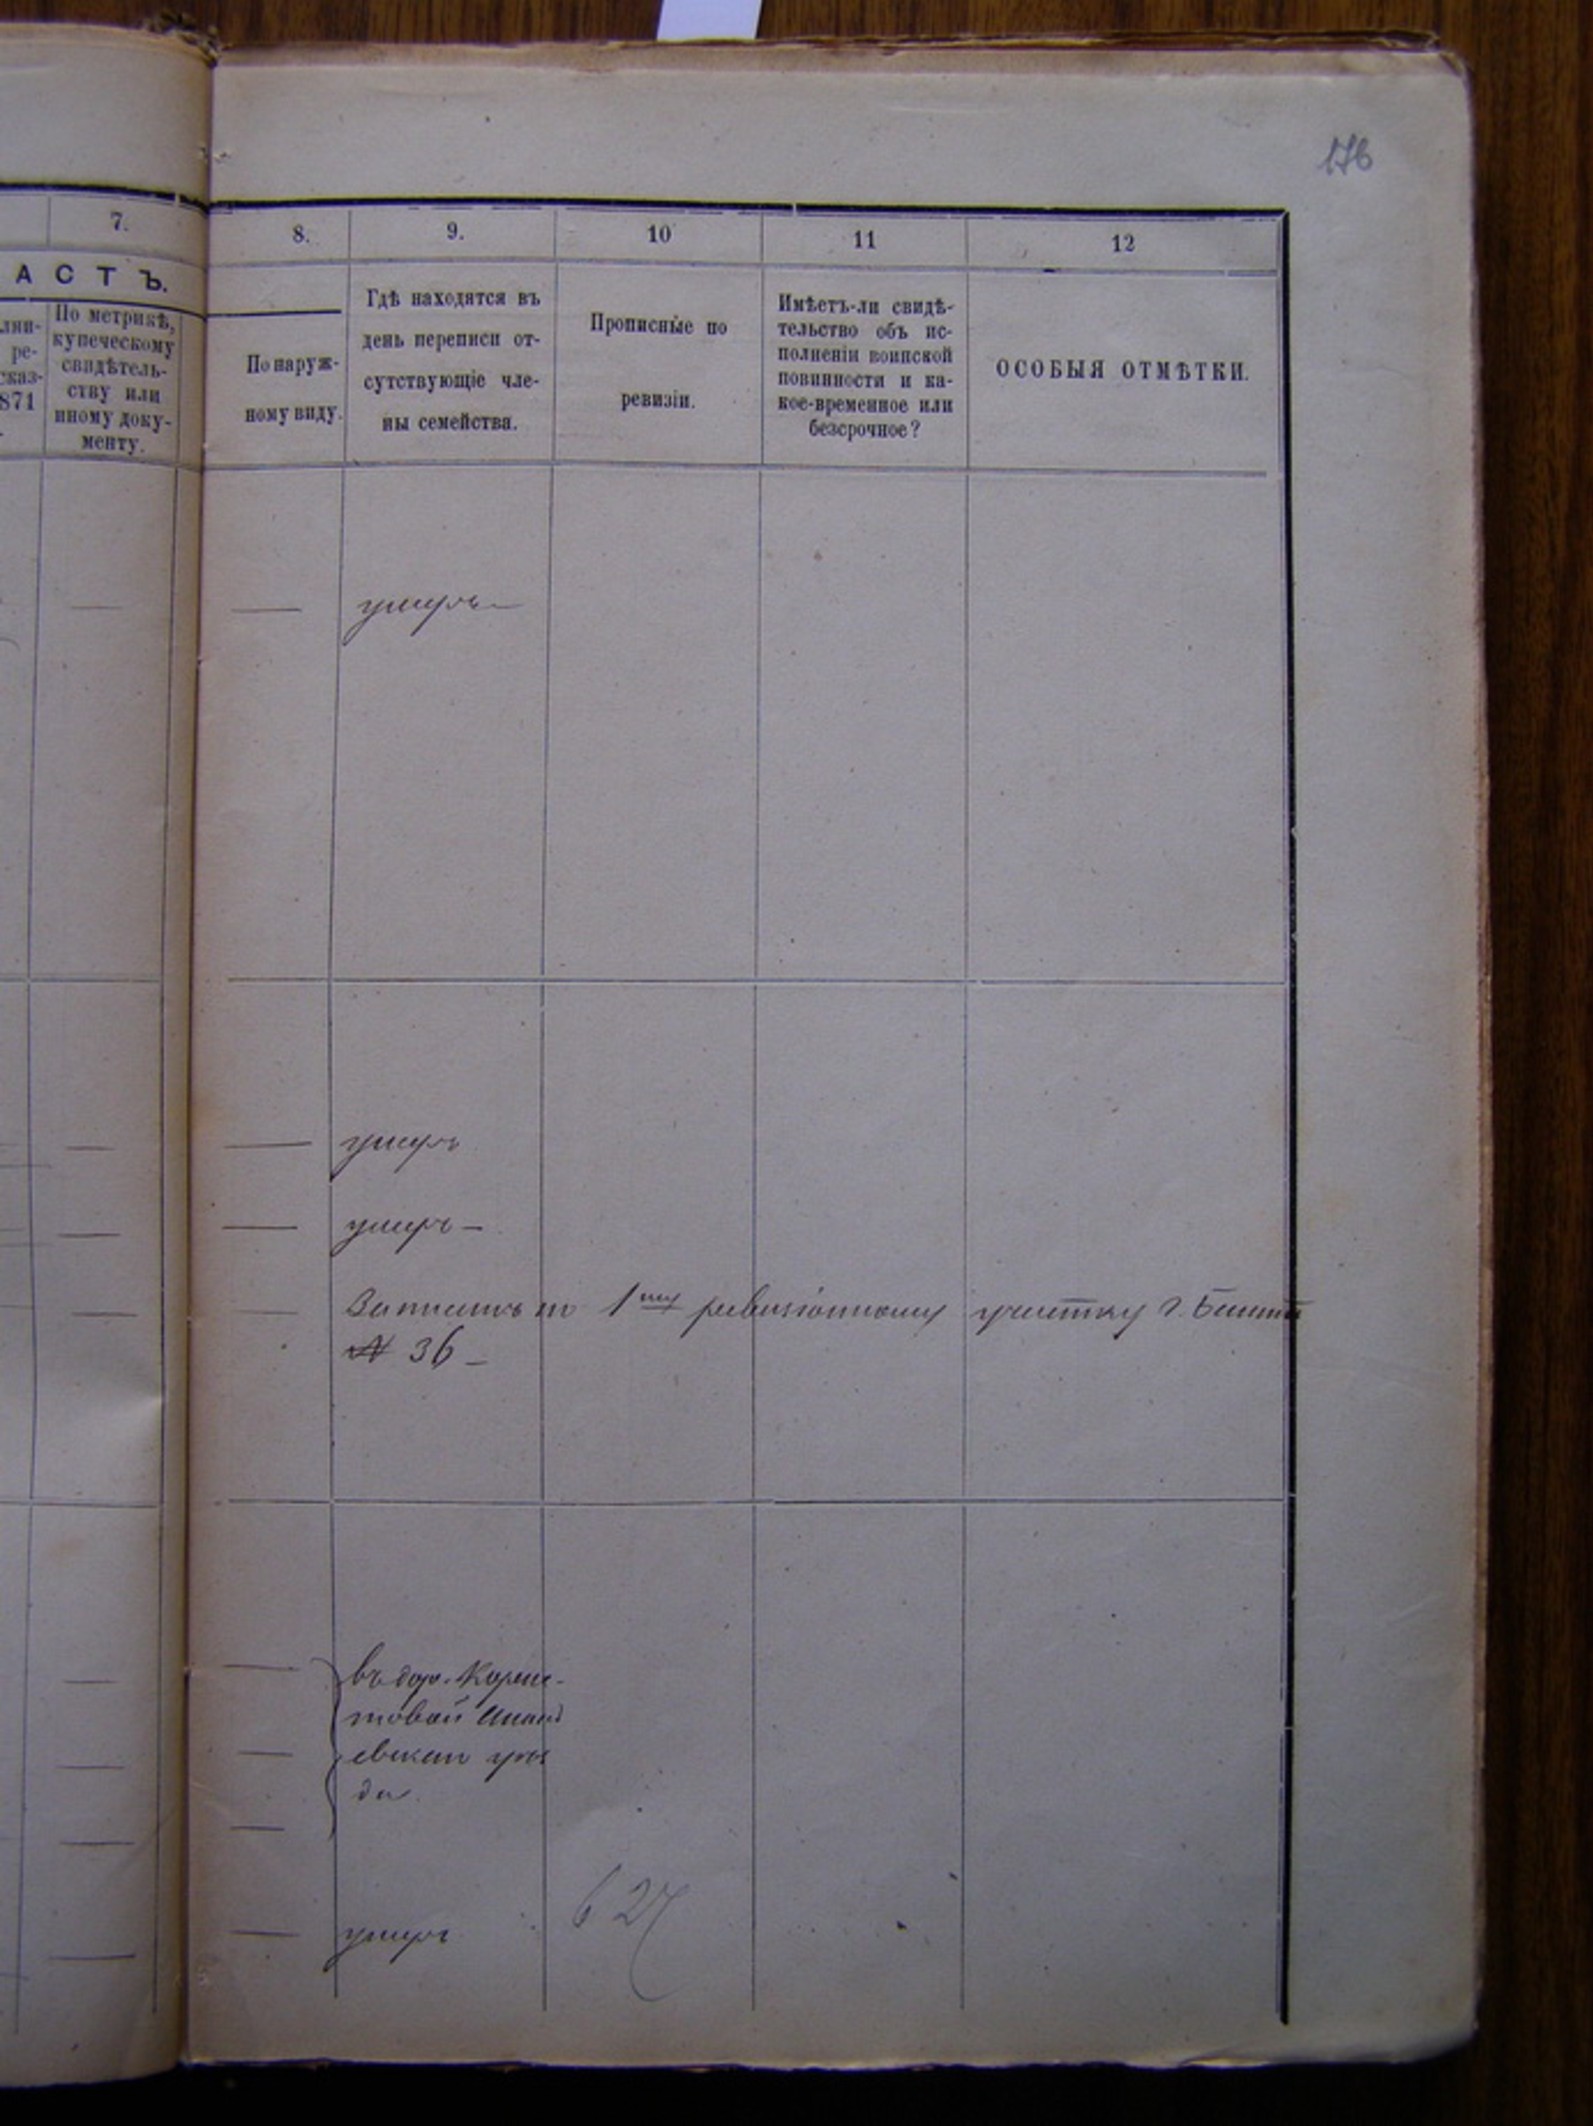 176
7.
8.
9.
10
11
12
АСТЪ.
лни-
ре-
сказ-
871
По метрикѣ,
купеческому
свидѣтель-
ству или
иному доку-
менту.
По наруж-
ному виду.
Гдѣ находятся въ
день переписи от-
сутствующіе чле-
ны семейства.
Прописные по
ревизіи.
Имѣетъ-ли свидѣ-
тельство объ ис-
полненіи воинской
повинности и ка-
кое-временное или
безсрочное?
ОСОБЫЯ ОТМѢТКИ.
умеръ
умеръ
умеръ
Записанъ по 1му ревизіонному участку г.
№ 36
въ дер.
товой
да
умеръ
627